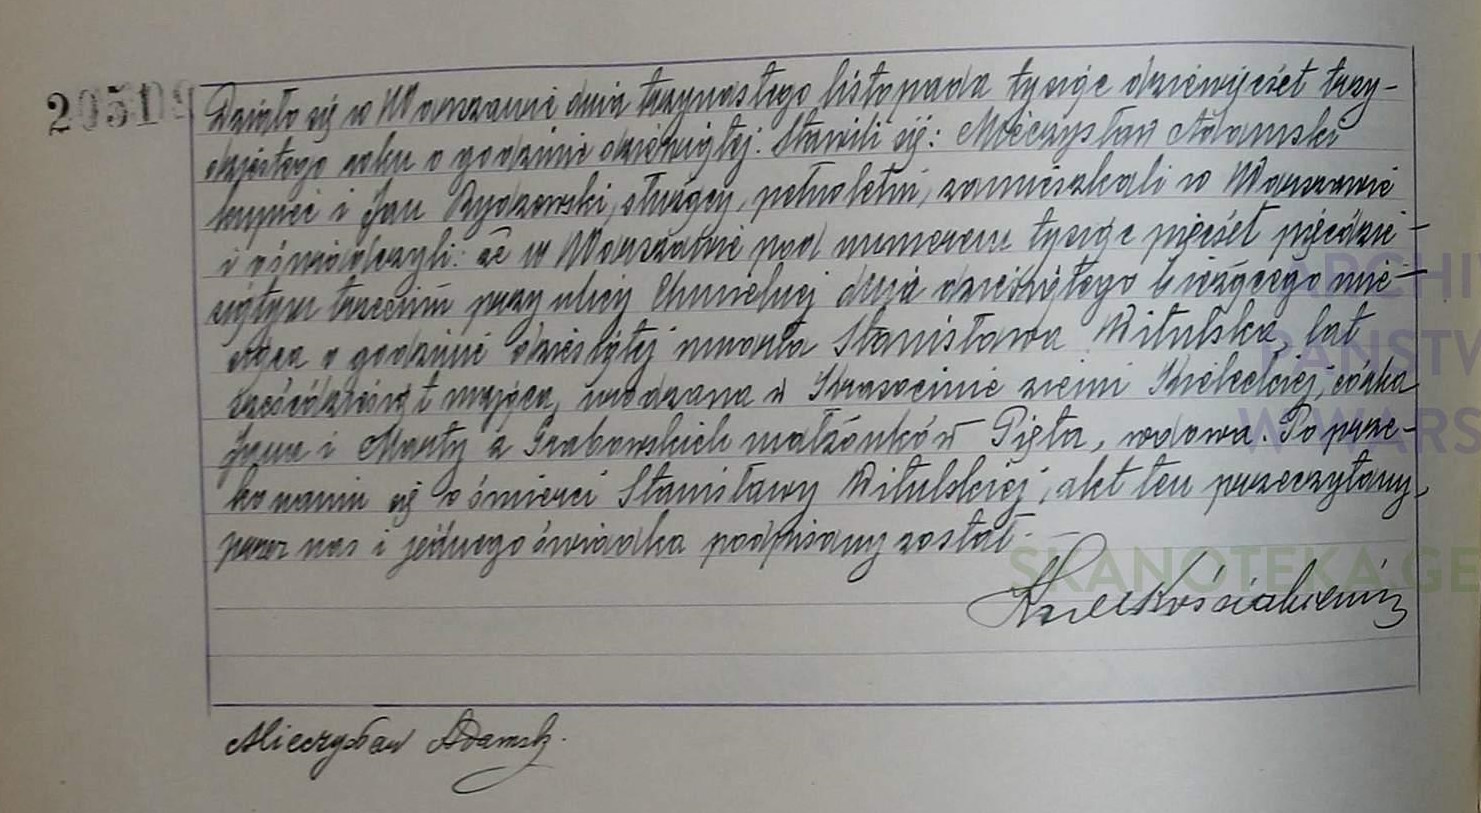 20518
Działo się w Warszawie dnia trzynastego listopada tysiąc dziewięćset trzy-
dziestego roku o godzinie dziewiątej. Stawili się: Mieczysław Adamski
kupiec i Jan Rydzewski, służący, pełnoletni, zamieszkali w Warszawie
i oświadczyli: że w Warszawie pod numerem tysiąc pięćset pięćdzie-
siątym trzecim przy ulicy Chmielnej dnia dziewiątego bieżącego mie-
siąca o godzinie dziesiątej umarła Stanisława Witulska lat
sześćdziesiąt mająca, urodzona w Krasocinie ziemi Kieleckiej, córka
Jana i Marty z Grabowskich małżonków Pięta, wdowa. Po prze-
konaniu się o śmierci Stanisławy Witulskiej, akt ten przeczytany,
przez nas i jednego świadka podpisany został.
Mieczysław Adamski
ARCHIW
PAŃSTW
W WARS
SKANOTEKA.GE